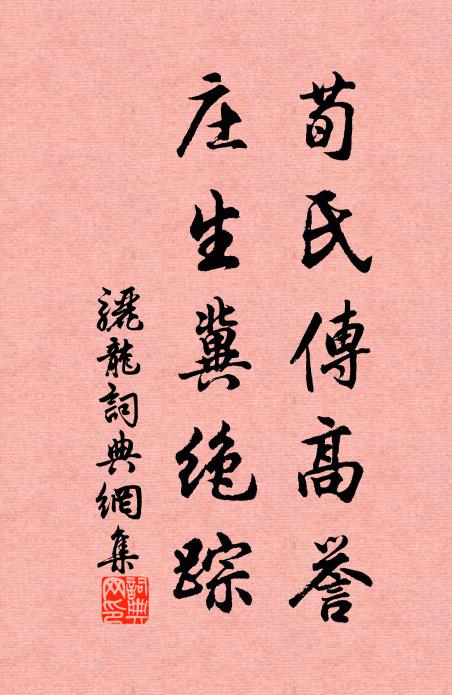 荀氏傳高誉
庄生冀絶踪
骊龍詞典網集
詞典网印